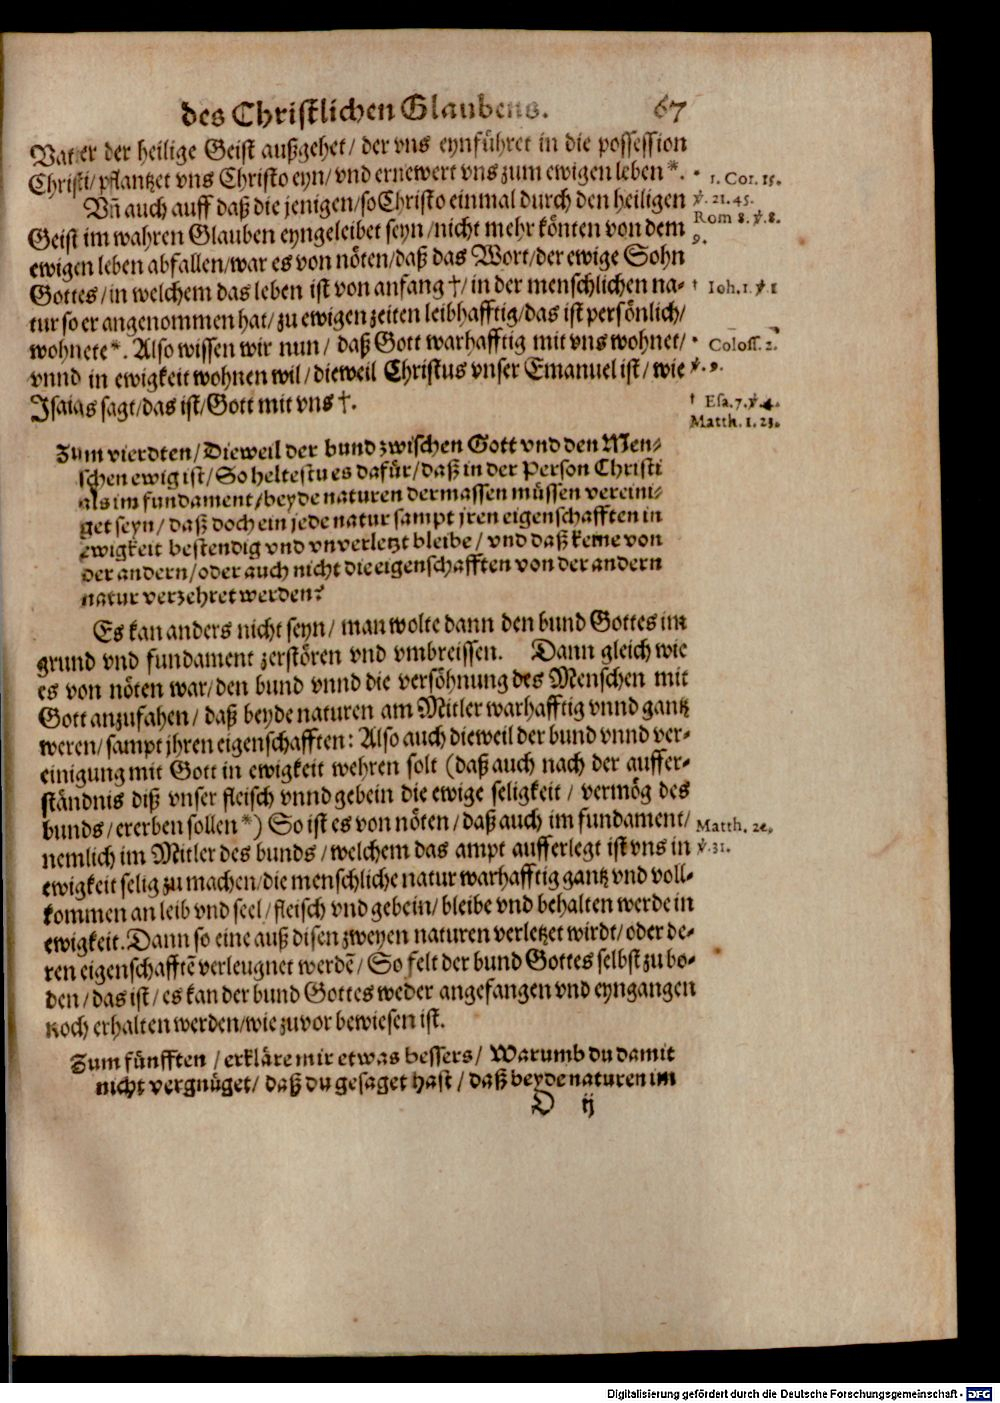 des Christlichen Glaubens. 67
Vatter der heilige Geist außgehet/ der vns eynführet in die possession
Christi/ pflantzet vns Christo eyn/ vnd ernewert vns zum ewigen leben*.
* 1. Cor. 15.
Vñ auch auff daß die jenigen/ so Christo einmal durch den heiligen
ꝟ. 21. 45.
Geist im wahren Glauben eyngeleibet seyn/ nicht mehr könten von dem
Rom 8. ꝟ. 8.
9.
ewigen leben abfallen/ war es von nöten/ daß das Wort/ der ewige Sohn
Gottes/ in welchem das leben ist von anfang †/ in der menschlichen na-
† Ioh. 1. ꝟ 1
tur so er angenommen hat/ zu ewigen zeiten leibhafftig/ das ist persönlich/
wohnete*. Also wissen wir nun/ daß Gott warhafftig mit vns wohnet/
* Coloss. 2.
vnnd in ewigkeit wohnen wil/ dieweil Christus vnser Emanuel ist/ wie
ꝟ. 9.
Isaias sagt/ das ist/ Gott mit vns †.
† Esa. 7. ꝟ. 4.
Matth. 1. 23.
Zum vierdten/ Dieweil der bund zwischen Gott vnd den Men-
schen ewig ist/ So heltestu es dafür/ daß in der Person Christi
als im fundament/ beyde naturen dermassen müssen vereini-
get seyn/ daß doch ein jede natur sampt jren eigenschafften in
ewigkeit bestendig vnd vnverletzt bleibe/ vnd daß keine von
der andern/ oder auch nicht die eigenschafften von der andern
natur verzehret werden?
Es kan anders nicht seyn/ man wolte dann den bund Gottes im
grund vnd fundament zerstören vnd vmbreissen. Dann gleich wie
es von nöten war/ den bund vnnd die versöhnung des Menschen mit
Gott anzufahen/ daß beyde naturen am Mitler warhafftig vnnd gantz
weren/ sampt jhren eigenschafften: Also auch dieweil der bund vnnd ver-
einigung mit Gott in ewigkeit wehren solt (daß auch nach der auffer-
ständnis diß vnser fleisch vnnd gebein die ewige seligkeit/ vermög des
bunds/ ererben sollen*) So ist es von nöten/ daß auch im fundament/
Matth. 22.
nemlich im Mitler des bunds/ welchem das ampt aufferlegt ist vns in
ꝟ. 31.
ewigkeit selig zu machen/ die menschliche natur warhafftig gantz vnd voll-
kommen an leib vnd seel/ fleisch vnd gebein/ bleibe vnd behalten werde in
ewigkeit. Dann so eine auß disen zweyen naturen verletzet wirdt/ oder de-
ren eigenschafftẽ verleugnet werdẽ/ So felt der bund Gottes selbst zu bo-
den/ das ist/ es kan der bund Gottes weder angefangen vnd eyngangen
noch erhalten werden/ wie zuvor bewiesen ist.
Zum fünfften/ erkläre mir etwas bessers/ Warumb du damit
nicht vergnüget/ daß du gesaget hast/ daß beyde naturen im
D ij
Digitalisierung gefördert durch die Deutsche Forschungsgemeinschaft - DFG